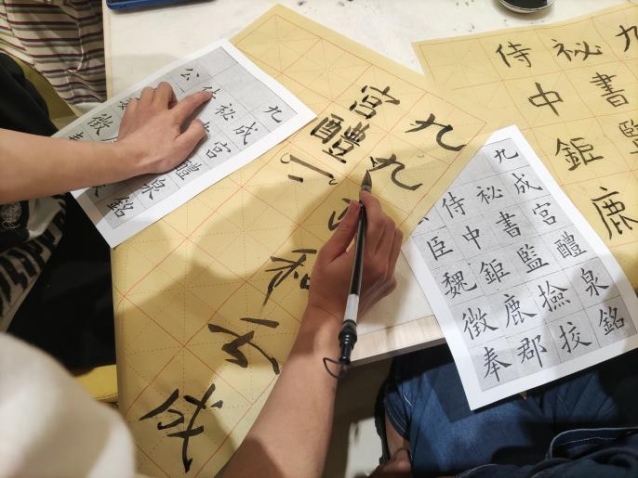 九成宮醴泉銘
秘
侍
公
徵
九
九
宮
醴
成
九
秘書監
侍中鉅鹿
九成宮醴泉銘
秘書監撿挍
侍中鉅鹿郡
臣魏徵奉